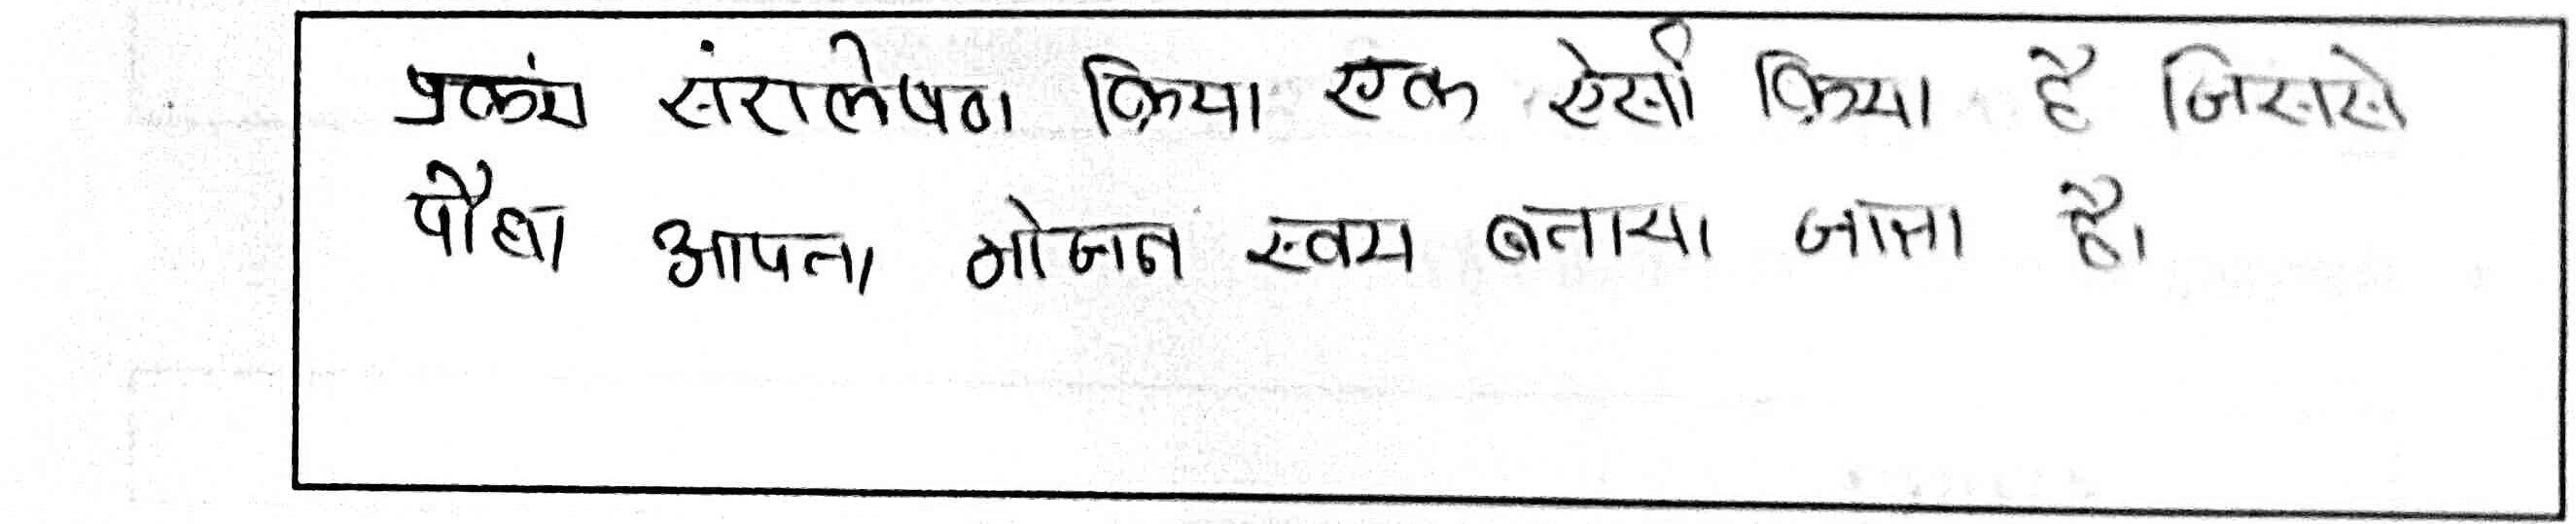 प्रकंश संशलेषण क्रिया एक ऐसी क्रिया है जिससे
पौधा आपना भोजन स्वय बनाया जाता है।